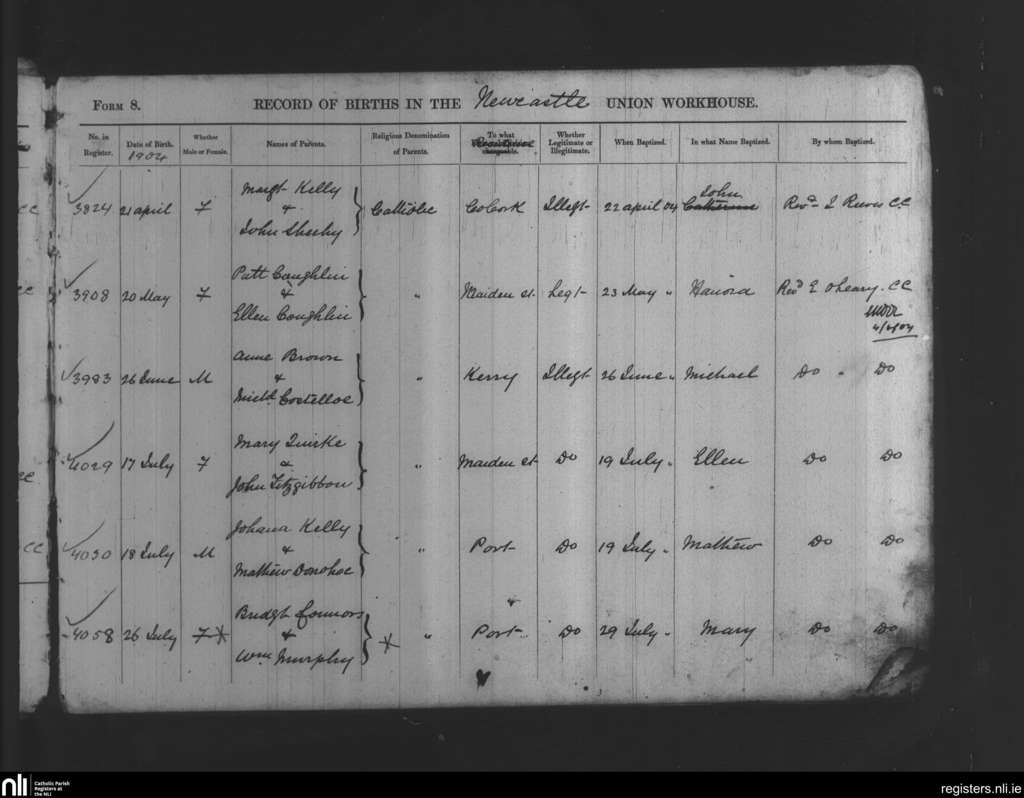 FORM 8. RECORD OF BIRTHS IN THE Newcastle UNION WORKHOUSE.
No. in Register. Date of Birth. 1904 Whether Male or Female. Names of Parents. Religious Denomination of Parents. To what chargeable. Whether Legitimate or Illegitimate. When Baptized. In what Name Baptized. By whom Baptized.
Margt Kelly
3824 21 April F & Catholic Co Cork Illegt 22 April 04 John Catherine Revd J Reeves CC
John Sheehy
Patt Coughlin
3908 20 May F & " Maiden st. Legt 23 May " Hanora Revd E O Leary. CC
Ellen Coughlin
4/6/04
Anne Brown
3993 26 June M & " Kerry Illegt 26 June " Michael Do " Do
Michl Costelloe
Mary Quirke
4029 17 July F & " Maiden st Do 19 July " Ellen Do Do
John Fitzgibbon
Johana Kelly
4030 18 July M & " Port Do 19 July " Mathew Do Do
Mathew Donohoe
Bridgt Connors
4058 26 July F & " Port Do 29 July " Mary Do Do
Wm Murphy
CC
CC
nli Catholic Parish Registers at the NLI
registers.nli.ie